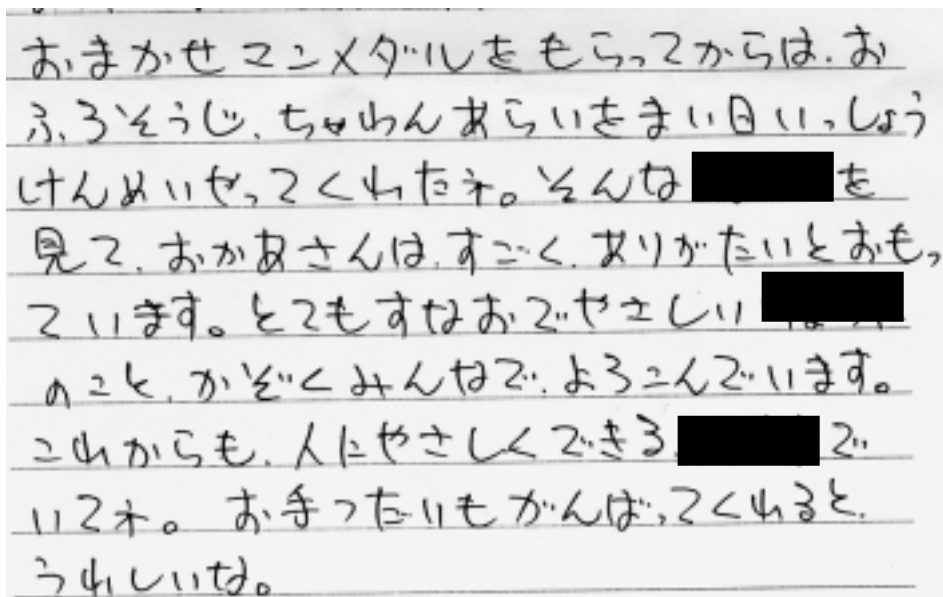 おまかせマンメダルをもらってからは、お
ふろそうじ、ちゃわんあらいをまい日いっしょう
けんめいやってくれたネ。そんな を
見て、おかあさんは、すごく、ありがたいとおもっ
ています。とてもすなおでやさしい
のこと、かぞくみんなで、よろこんでいます。
これからも、人にやさしくできる で
いてネ。お手つたいもがんばってくれると、
うれしいな。